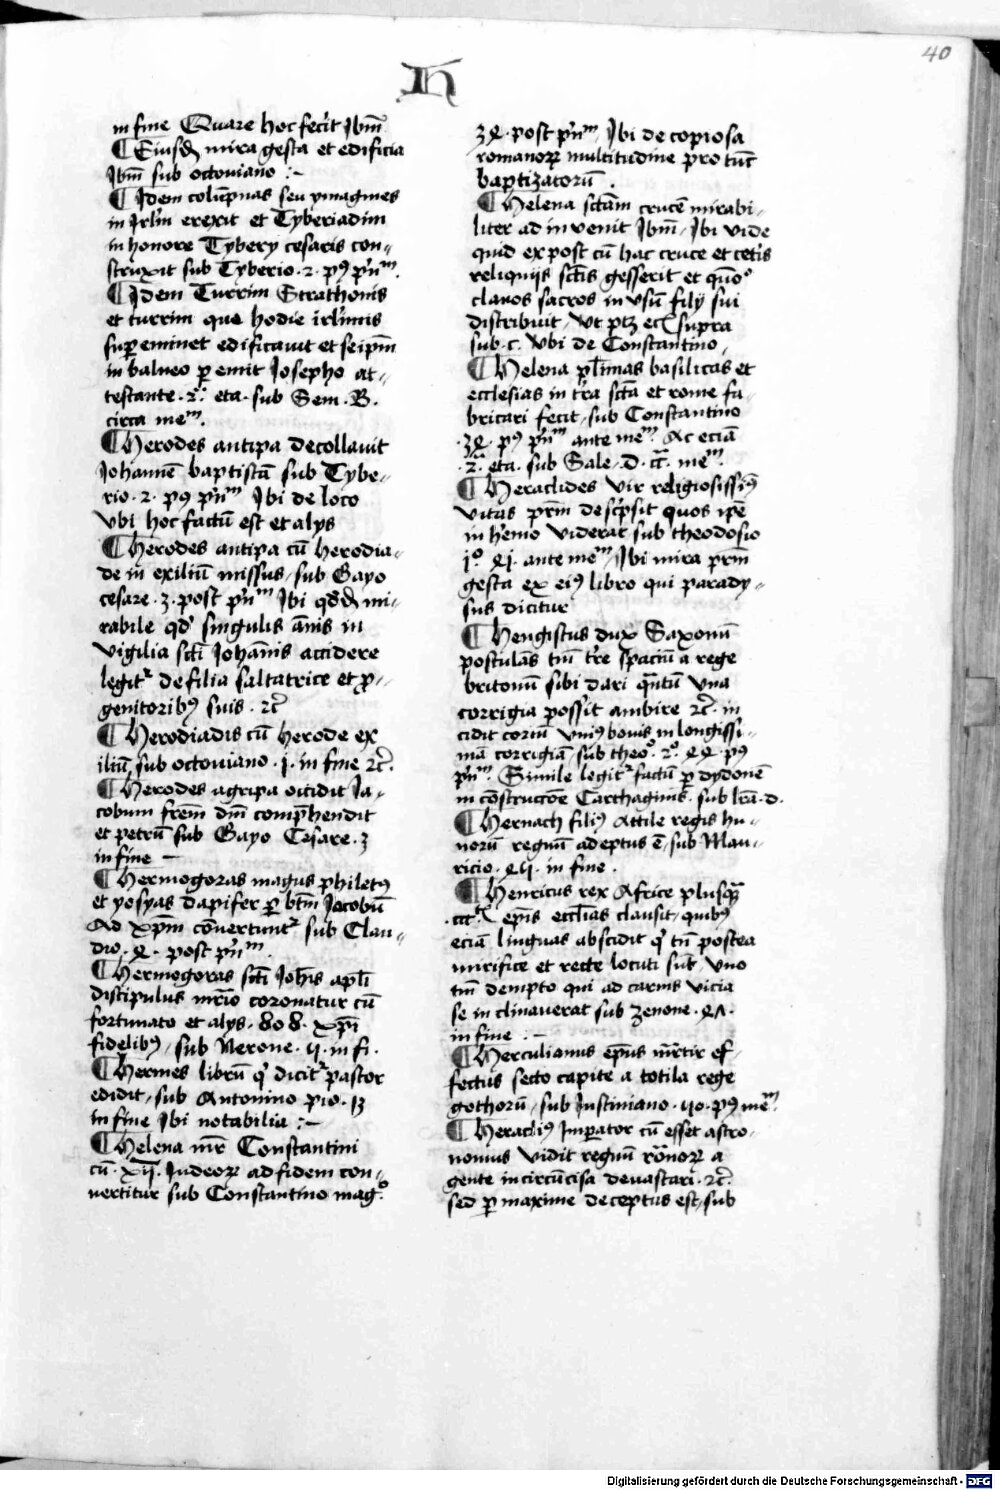 40
H
in fine Quare hoc fecit Ibm̅
¶ Eiusd̅ mira gesta et edificia
Ibm̅ sub octoviano :~
¶ Idem colu̅pnas seu ymagines
in Irlm̅ erexit et Tyberiadim
in honore Tybery cesaris con-
struxit sub Tyberio · 2 · pꝰ pn̅m
¶ Idem Turrim Strathonis
et turrim que hodie irlimis
suꝑ eminet edificavit et seipm̅
in balneo ꝑemit Iosepho at-
testante · 2 · eta · sub Sem · B ·
circa mem
¶ Herodes antipa decollavit
Iohanne̅ baptista̅ sub Tybe-
rio · 2 · pꝰ pn̅m Ibi de loco
vbi hoc factu̅ est et alys
¶ Herodes antipa cu̅ herodia-
de in exiliu̅ missus / sub Gayo
cesare · 3 · post pn̅m Ibi mi-
rabile qd' singulis an̅is in
vigilia sc̅ti Iohanis accidere
legit de filia saltatrice et p-
genitoribꝰ suis · ⁊c̅
¶ Herodiadis cu̅ herode ex
iliu̅ / sub octoviano · i · in fine ⁊c̅ ·
¶ Herodes agripa occidit Ia-
cobum frem̅ dni̅ comp̅hendit
et petru̅ sub Gayo Cesare · 3
in fine —
¶ Hermogoras magus philetꝰ
et yosyas dapifer ꝑ btm̅ Iacobu̅
Ad xpm̅ co̅vertunt sub Clau-
dio · post pn̅m
¶ Hermogoras sc̅ti Ioh̅is apl̅i
discipulus mr̅io coronatur cu̅
fortunato et alys · 808 · xpi̅
fidelibꝰ / sub Nerone · ij · in fi ·
¶ Hermes libru̅ qi dicit pastor
edidit / sub Antonino pio · 13
in fine Ibi notabilia :~
¶ Helena mr̅ Constantini
cu̅ · xij · Iudeoꝝ ad fidem con-
vertitur sub Constantino mago
post pn̅m / Ibi de copiosa
romanoꝝ multitudine pro tu̅c
baptizatoru̅ ·
¶ Helena sc̅tam cruce̅ mirabi-
liter ad invenit Ibm̅ / Ibi vide
quid ex post cu̅ hac cruce et ceteris
reliquijs sc̅tis gesserit et quo̅o
clavos sacros in vsu̅ fily sui
distribuit / vt ptz supra
sub · c · vbi de Constantino /
¶ Helena pl̅imas basilicas et
ecclesias in tr̅a sc̅ta et rome fa-
bricari fecit / sub Constantino
pꝰ pn̅m ante mem Ac ecia̅
· 2 · eta · sub Sale · d · mem
¶ Heraclides vir religiosissiꝰ
vitas desc̅psit quos ip̅e
in h̅emo viderat sub theodosio
io · ante mem / Ibi mira
gesta ex eiꝰ libro qui parady-
sus dicitur
¶ Hengistus dux Saxonu̅
postula̅s tm̅ tr̅e spaciu̅ a rege
britonu̅ sibi dari qua̅tu̅ vna
corrigia possit ambire ⁊c̅ · in
cidit coriu̅ vniꝰ bovis in longissi-
ma̅ corrigia̅ / sub theoo · 2o · pꝰ
pn̅m Simile legit factu̅ ꝑ dydone̅
in co̅struccio̅e Carthaginis · sub lr̅a · d ·
¶ Hernach filiꝰ Attile regis hu-
noru̅ regnu̅ adeptus e̅ / sub Mau-
ricio · in fine ·
¶ Henricus rex Africe plusqua̅
epi̅s eccl̅ias clausit / quibꝰ
ecia̅ linguas abscidit qi tn̅ postea
mirifice et recte locuti su̅t / vno
tm̅ dempto qui ad carnis vicia
se in clinaverat sub zenone ·
in fine : ~
¶ Herculianus epu̅s mr̅tir ef-
fectus secto capite a totila rege
gothoru̅ / sub Iustiniano · pꝰ mem
¶ Heracliꝰ Imꝑator cu̅ esset astro-
nomus vidit regnu̅ ro̅anoꝝ a
gente incircu̅cisa devastari · ⁊c̅ ·
sed ꝑ maxime deceptus est / sub
Digitalisierung gefördert durch die Deutsche Forschungsgemeinschaft - DFG